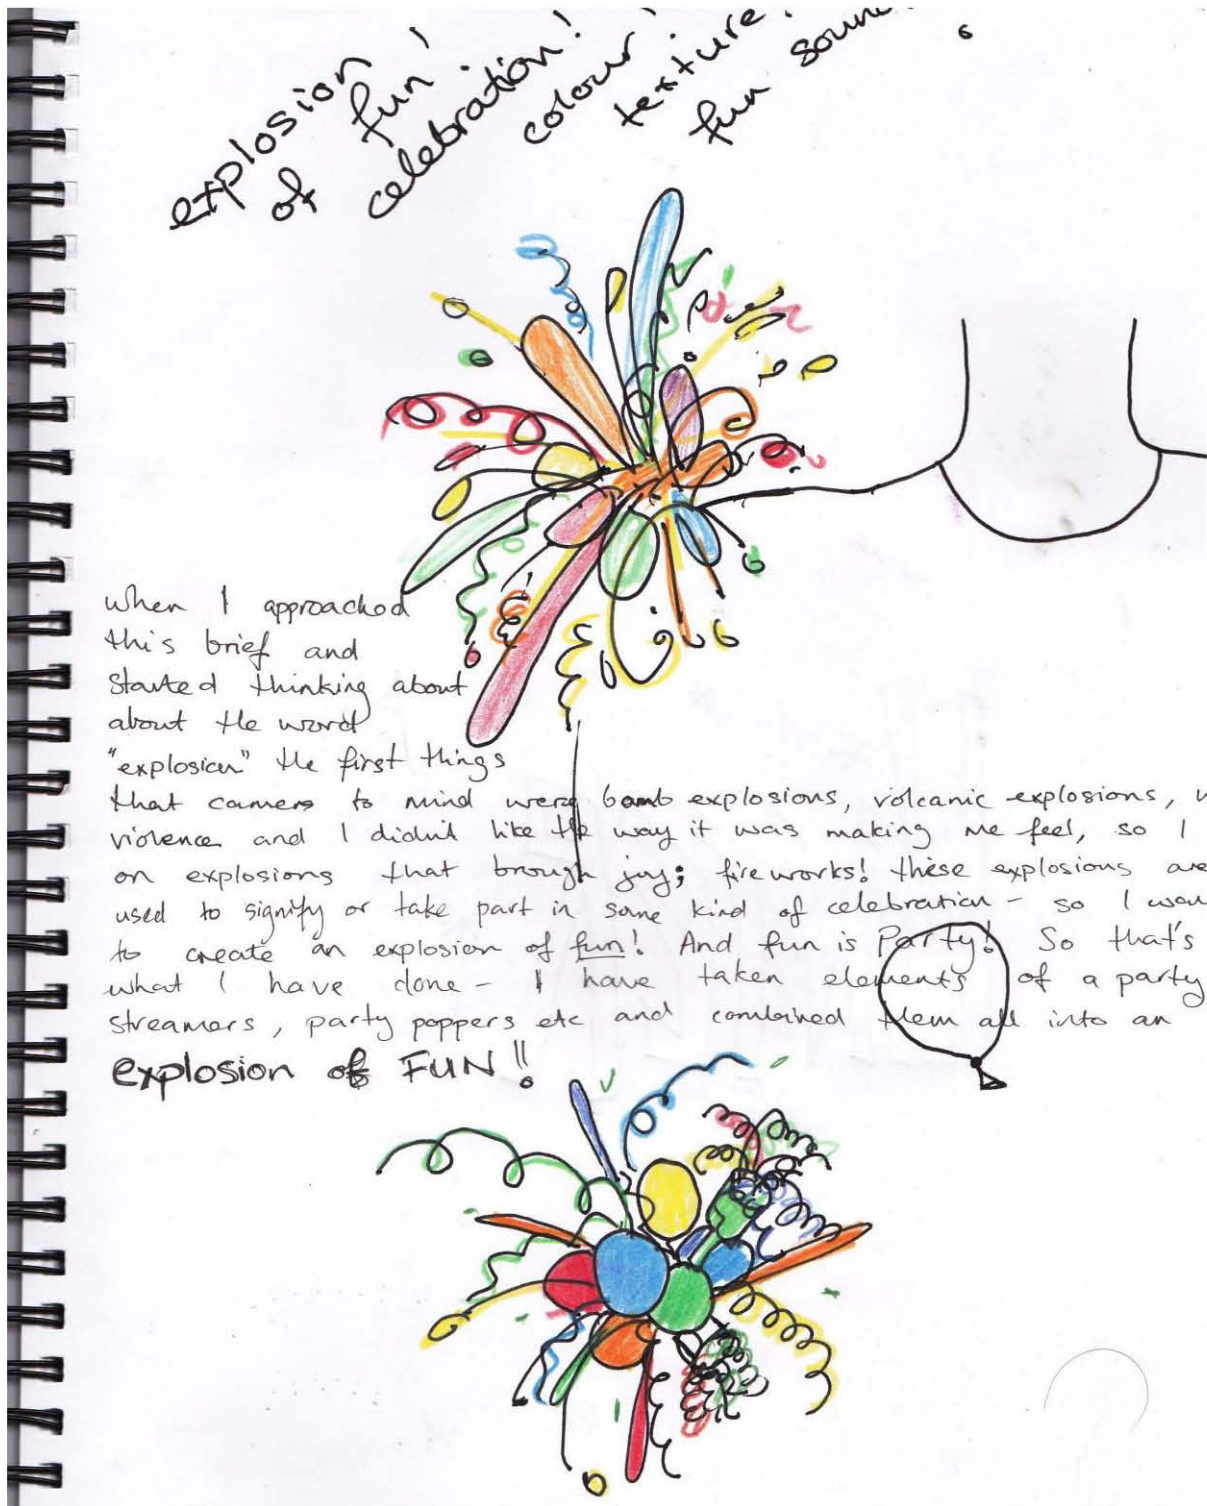 explosion
of fun!
celebration!
colour!
texture!
fun
when I approached
this brief and
started thinking about
about the word
"explosion" the first things
that camers to mind were bomb explosions, volcanic explosions,
violence and I didn't like the way it was making me feel, so I
on explosions that brough joy; fireworks! these explosions are
used to signify or take part in some kind of celebration - so I
to create an explosion of fun! And fun is Party! So that's
what I have done - I have taken elements of a party
streamers, party poppers etc and combined them all into an
explosion of FUN!!